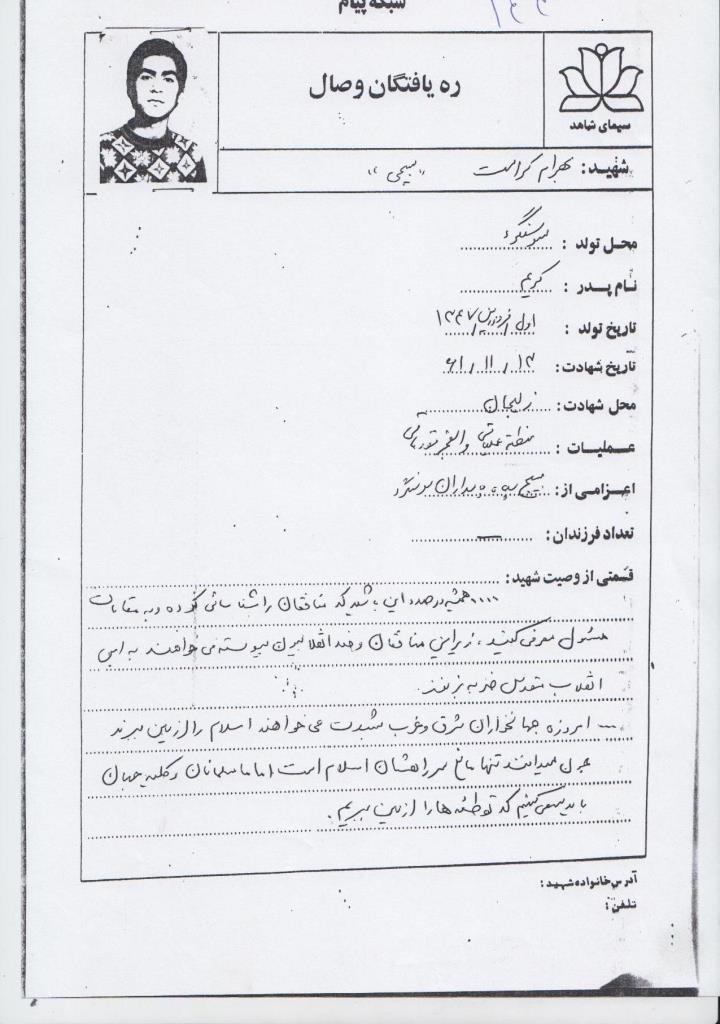 شبکه پیام
ره یافتگان وصال
سیمای شاهد
شهید: بهرام کرامت "بسیجی"
محل تولد : سوسنگرد
نام پدر : کریم
تاریخ تولد : اول فروردین ۱۳۴۷
تاریخ شهادت: ۱۳ / ۱۱ / ۶۱
محل شهادت:
عملیات : منطقه عملیاتی والفجر مقدماتی
اعزامی از: بسیج سپاه پاسداران سوسنگرد
تعداد فرزندان: —
قسمتی از وصیت شهید:
.... همیشه درصدد این باشید که منافقان را شناسائی کرده و به مقامات
مسئول معرفی کنید، زیرا این منافقان و ضد انقلابیون پیوسته می‌خواهند به این
انقلاب مقدس ضربه بزنند.
... امروزه جهانخواران شرق و غرب بشدت می‌خواهند اسلام را از بین ببرند
چون میدانند تنها مانع سر راهشان اسلام است اما ما مسلمانان و کلیه جهان
باید سعی کنیم که توطئه‌ها را از بین ببریم.
آدرس خانواده شهید:
تلفن: